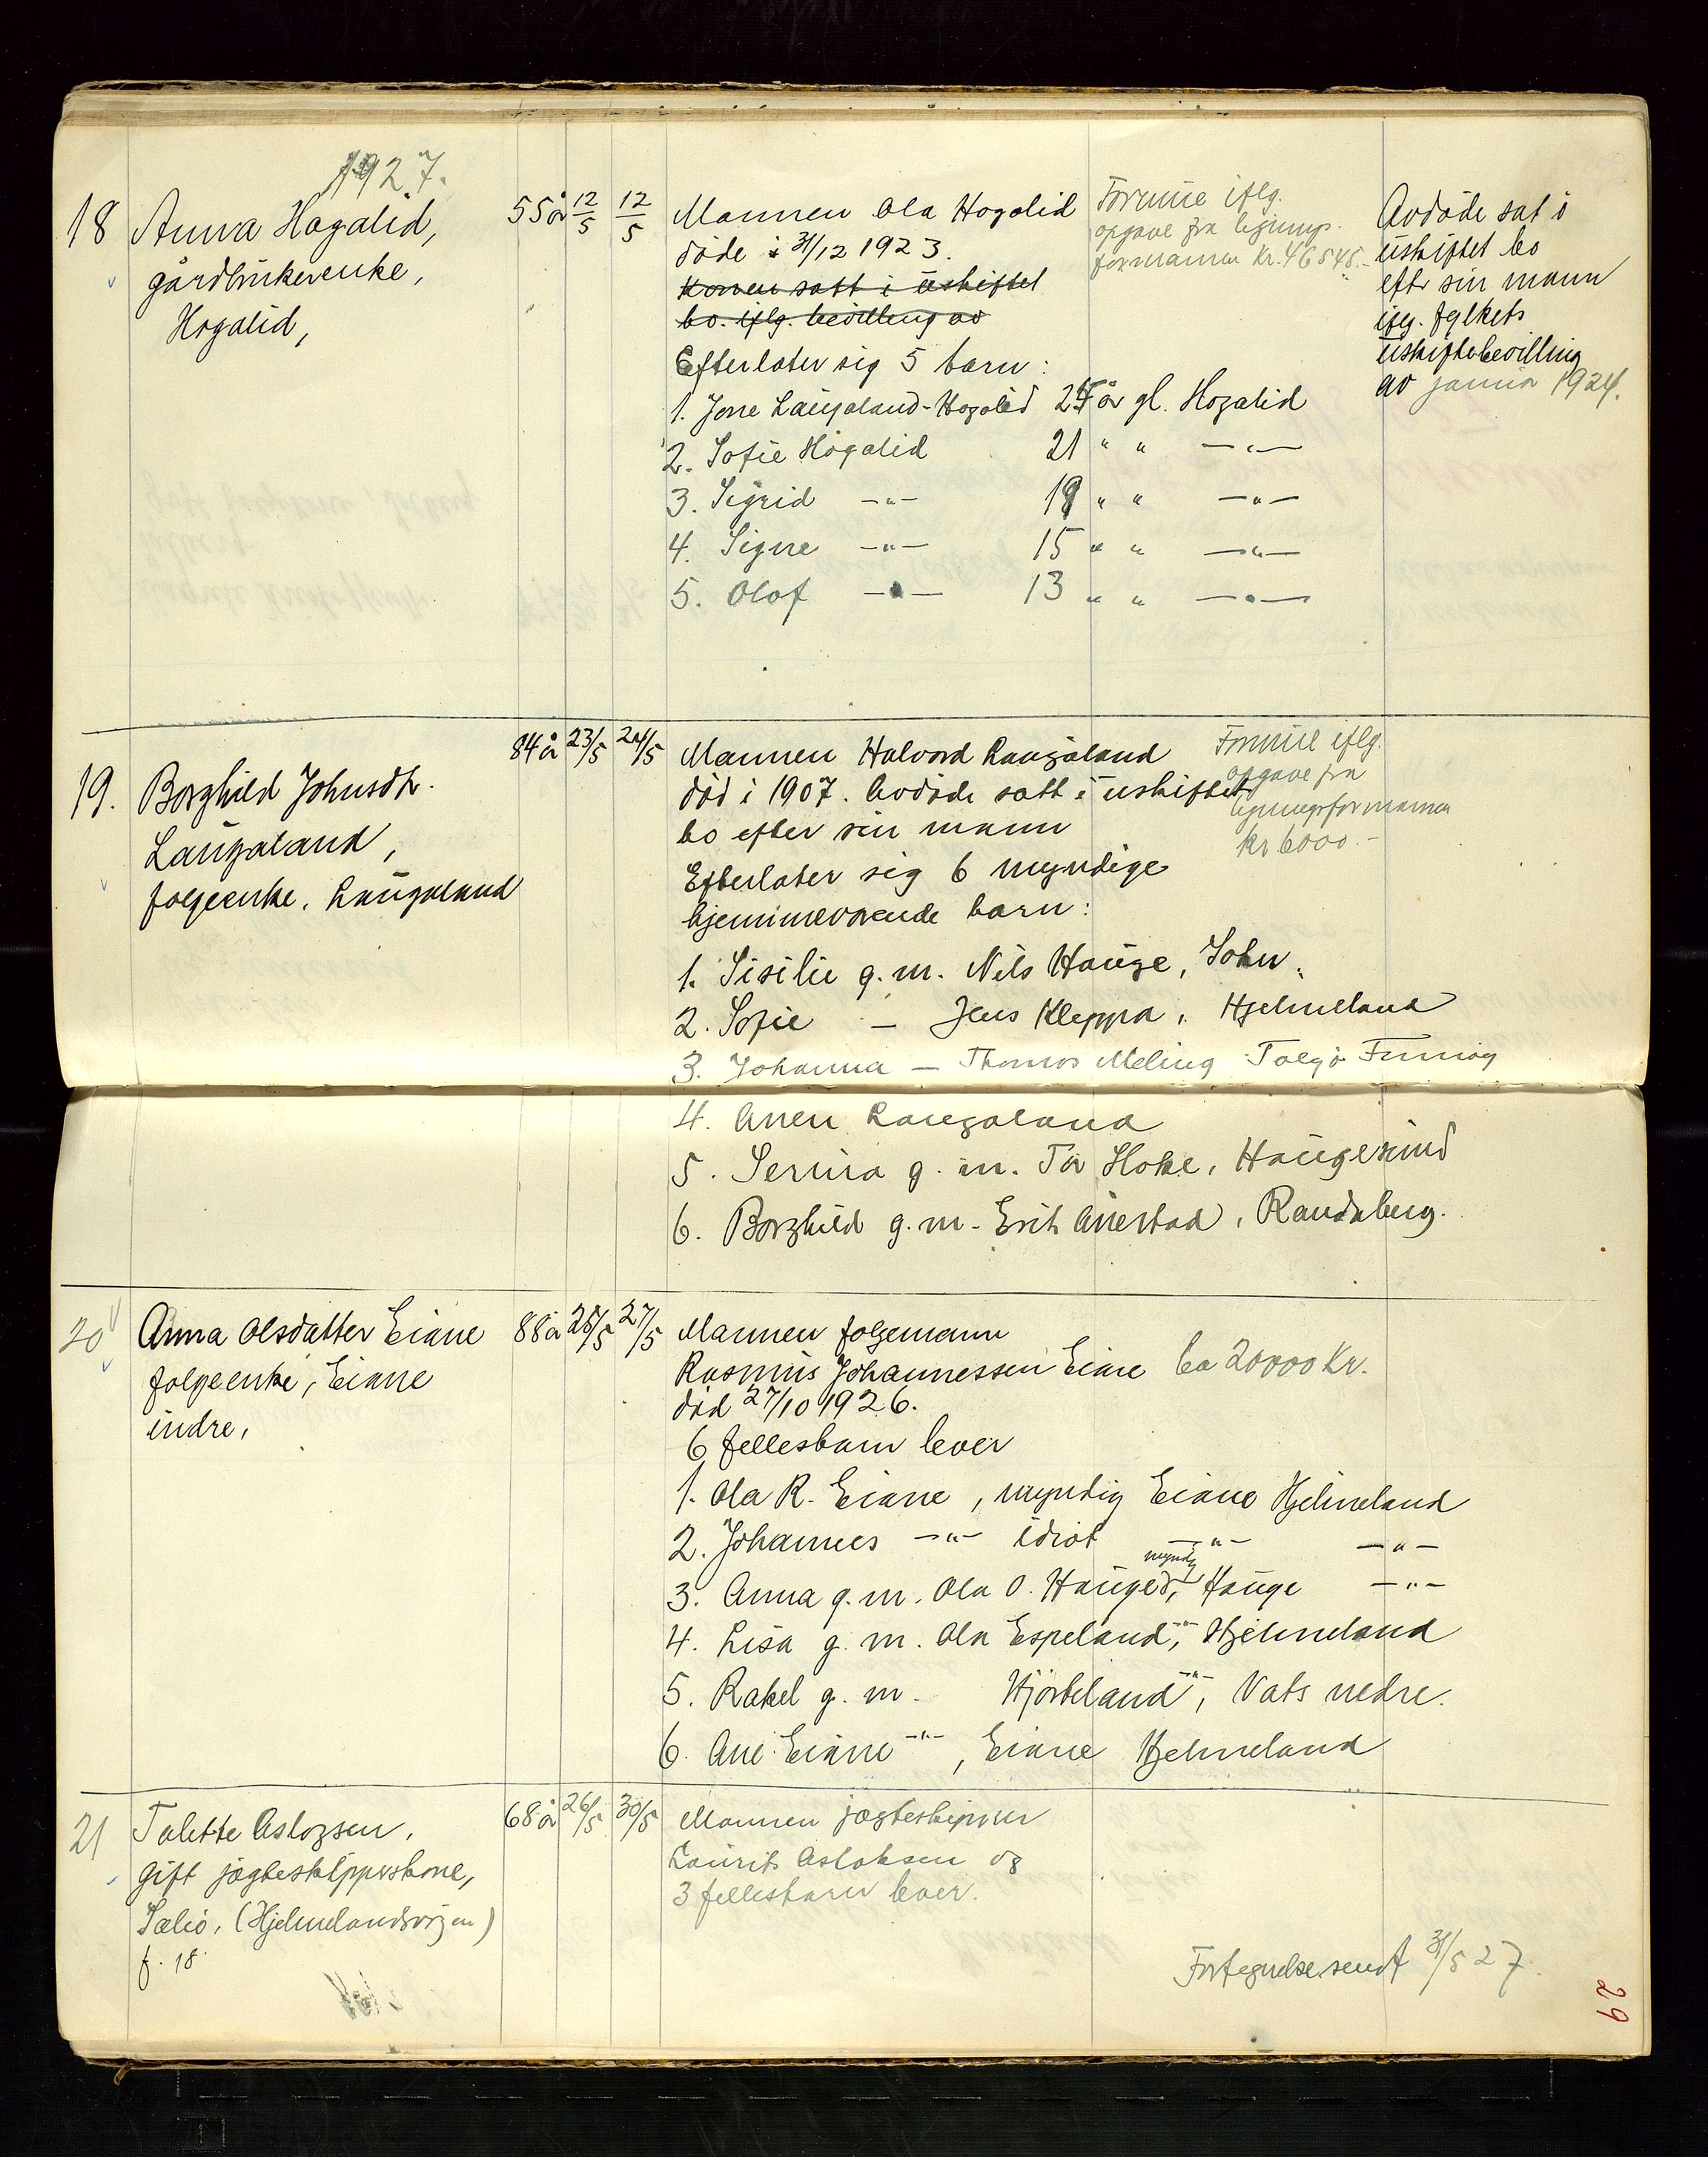 1927.
18 Anna Hogalid, 55 år 12/5 12/5 Mannen Ola Hogalid
gårdbrukerenke,
Hogalid,
døde i 31/12 1923.
Konen satt i uskiftet
bo. iflg. bevilling av
Efterlater sig 5 barn:
1. Jone Laugaland-Hogalid år gl. Hogalid
2. Sofie Hogalid 21 " " —"—
3. Sigrid —"— 19 " " —"—
4. Signe —"— 15 " " —"—
5. Olof —"— 13 " " —"—
Formue iflg.
opgave fra lignings-
formannen Kr. 46545.-
Avdøde sat i
uskiftet bo
eftr sin mann
iflg. fylkets
uskiftebevilling
av januar 1924.
19. Borghild Johnsdtr. 84 år 23/5 24/5
Laugaland,
folgeenke, Laugaland
Mannen Halvord Laugaland
død i 1907. Avdøde satt i uskiftet
bo efter sin mann
Efterlater sig 6 myndige
hjemmeværende barn:
1. Sisilie g. m. Nils Hauge, John.
2. Sofie — Jens Kleppa, Hjelmeland
3. Johanna — Thomas Meling Talgø Finnøy
4. Anen Laugaland
5. Serina g. m. Tor Hoke, Haugesund
6. Borghild g. m. Erik Anestad, Randaberg.
Formue iflg.
opgave fra
ligningsformannen
kr 6000.-
20 Anna Olsdatter Eiane 88 år 25/5 27/5
folgeenke, Eiane
indre,
Mannen folgemann
Rasmus Johannessen Eiane ca 20000 Kr.
død 27/10 1926.
6 fellesbarn lever
1. Ola R. Eiane, myndig Eiane Hjelmeland
2. Johannes —"— idiot —"— —"—
3. Anna g. m. Ola O. Hauge, myndig Hauge —"—
4. Lisa g. m. Ola Espeland, —"— Hjelmeland
5. Rakel g. m. Hjorteland —"—, Vats nedre.
6. Ane Eiane —"—, Eiane Hjelmeland
21 Talette Aslogsen, 68 år 26/5 30/5
Gift jagteskipperskone,
Sæliø, (Hjelmelandsvågen)
f. 18
Mannen jagteskipper
Laurits Aslaksen og
3 fellesbarn lever.
Fortegnelse sendt 31/5 27.
29